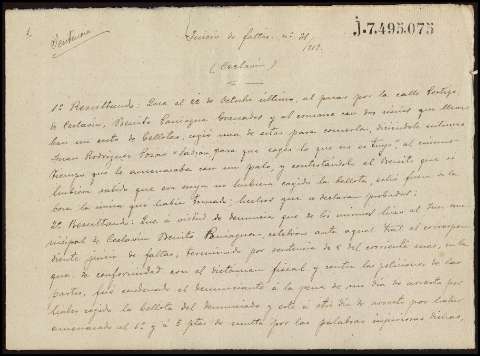 Sentencia
Juicio de faltas nº 28
j.7.495.075
1912.
(Ceclavin)
1º Resultando: Que el 22 de Octubre último, al pasar por la calle Cortiza,
de Ceclavin, Benito Paniagua Granados y al cruzarse con dos niños que lleva-
ban un cesto de bellotas, cogió una de estas para comerla, diciéndole entonces
Juan Rodriguez Rosas "ladron, para que coges lo que no es tuyo", al mismo
tiempo que le amenazaba con un palo, y contestándole el Benito que si
hubiera sabido que era suya no hubiera cogido la bellota, echó fuera de la
boca la única que habia tomado: hechos que se declaran probados:
2º Resultando: Que á virtud de denuncia que de los mismos hizo al Juez mu-
nicipal de Ceclavin Benito Paniagua, celebróse ante aquel Tral. el correspon-
diente juicio de faltas, terminado por sentencia de 8 del corriente mes, en la
que, de conformidad con el dictamen fiscal y contra las peticiones de las
partes, fué condenado el denunciante á la pena de un dia de arresto por
haber cogido la bellota del denunciado y este á otro dia de arresto por haber
amenazado al 1º y á 5 ptas de multa por las palabras injuriosas dichas,